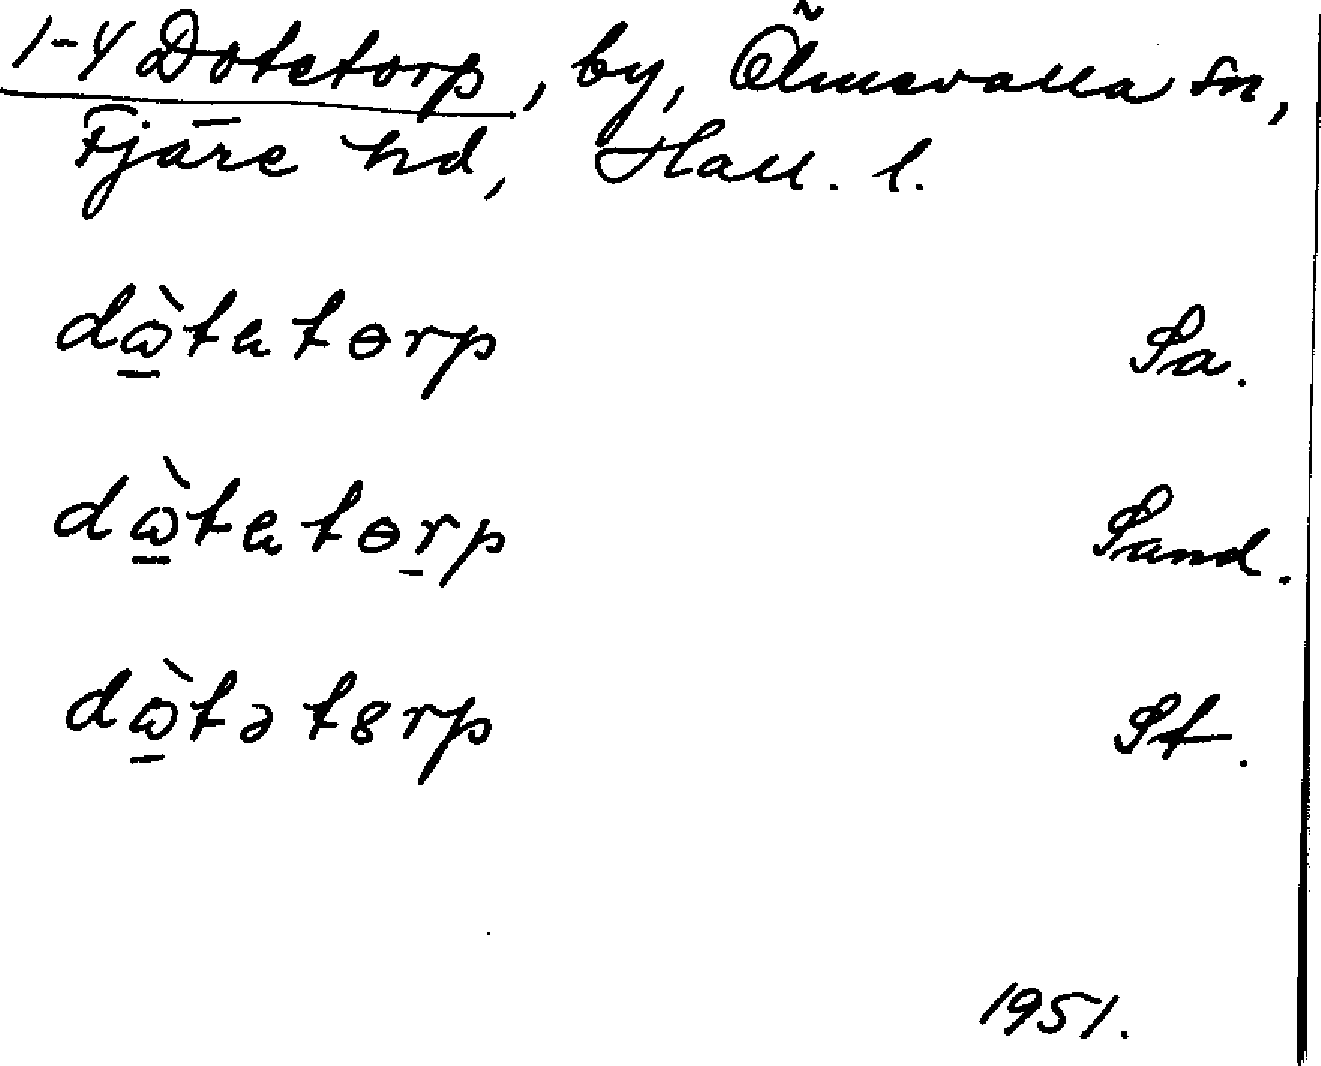 1-4 Dotetorp, by, Ölmevalla sn,
Fjäre hd, Hall. l.
dὼ̲tatɵrp Sa.
dὼ̲tatɵr̲p Sand.
dὼ̲tət8rp St.
1951.